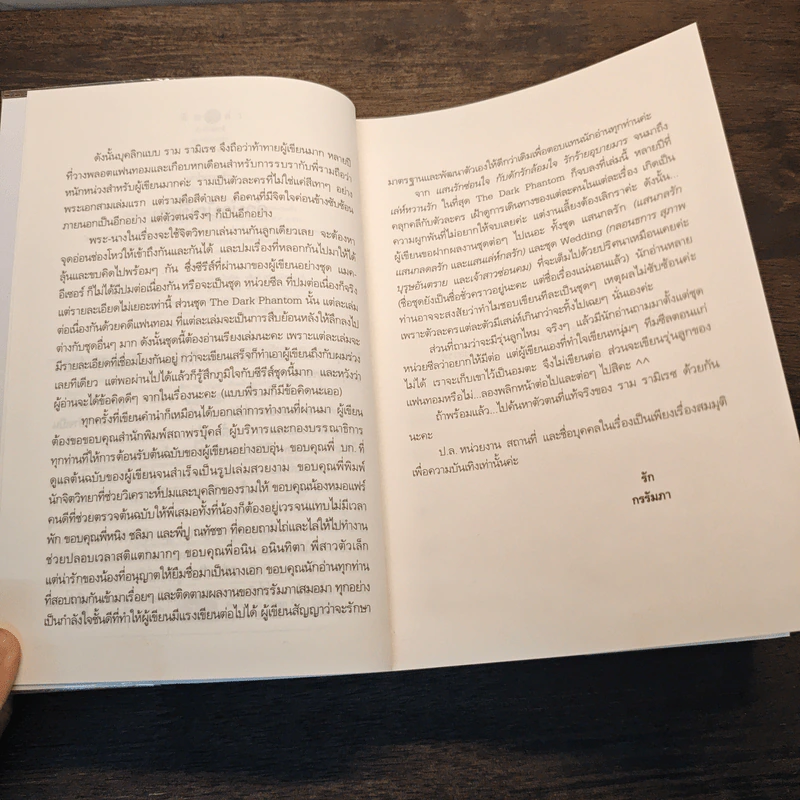 ดังนั้นบุคลิกแบบ ราม รามิเรซ จึงถือว่าท้าทายผู้เขียนมาก หลายปี
ที่วางพลอตแฟนทอมและเกือบหกเดือนสำหรับการรบรากับพี่รามถือว่า
หนักหน่วงสำหรับผู้เขียนมากค่ะ รามเป็นตัวละครที่ไม่ใช่แค่สีเทาๆ อย่าง
พระเอกสามเล่มแรก แต่รามคือสีดำเลย คือคนที่มีจิตใจค่อนข้างซับซ้อน
ภายนอกเป็นอีกอย่าง แต่ตัวตนจริงๆ ก็เป็นอีกอย่าง
พระ-นางในเรื่องจะใช้จิตวิทยาเล่นงานกันลูกเดียวเลย จะต้องหา
จุดอ่อนช่องโหว่ให้เข้าถึงกันและกันได้ และปมเรื่องที่หลอกกันไปมาให้ได้
ลุ้นและขบคิดไปพร้อมๆ กัน ซึ่งซีรีส์ที่ผ่านมาของผู้เขียนอย่างชุด แมค-
อีเซอร์ ก็ไม่ได้มีปมต่อเนื่องกัน หรือจะเป็นชุด หน่วยซีล ที่ปมต่อเนื่องก็จริง
แต่รายละเอียดไม่เยอะเท่านี้ ส่วนชุด The Dark Phantom นั้น แต่ละเล่ม
ต่อเนื่องกันด้วยคดีแฟนทอม ที่แต่ละเล่มจะเป็นการสืบย้อนหลังให้ลึกลงไป
ต่างกับชุดอื่นๆ มาก ดังนั้นชุดนี้ต้องอ่านเรียงเล่มนะคะ เพราะแต่ละเล่มจะ
มีรายละเอียดที่เชื่อมโยงกันอยู่ กว่าจะเขียนเสร็จก็ทำเอาผู้เขียนถึงกับผมร่วง
เลยทีเดียว แต่พอผ่านไปได้แล้วก็รู้สึกภูมิใจกับซีรีส์ชุดนี้มาก และหวังว่า
ผู้อ่านจะได้ข้อคิดดีๆ จากในเรื่องนะคะ (แบบพี่รามก็มีข้อคิดนะเออ)
ทุกครั้งที่เขียนคำนำก็เหมือนได้บอกเล่าการทำงานที่ผ่านมา ผู้เขียน
ต้องขอขอบคุณสำนักพิมพ์สถาพรบุ๊คส์ ผู้บริหารและกองบรรณาธิการ
ทุกท่านที่ให้การต้อนรับต้นฉบับของผู้เขียนอย่างอบอุ่น ขอบคุณพี่ บก. ที่
ดูแลต้นฉบับของผู้เขียนจนสำเร็จเป็นรูปเล่มสวยงาม ขอบคุณพี่พิมพ์
นักจิตวิทยาที่ช่วยวิเคราะห์ปมและบุคลิกของรามให้ ขอบคุณน้องหมอแฟร์
คนดีที่ช่วยตรวจต้นฉบับให้พี่เสมอทั้งที่น้องก็ต้องอยู่เวรจนแทบไม่มีเวลา
พัก ขอบคุณพี่หนิง ชลิมา และพี่ปู ณทัชชา ที่คอยถามไถ่และไล่ให้ไปทำงาน
ช่วยปลอบเวลาสติแตกมากๆ ขอบคุณพี่อนิน อนินทิตา พี่สาวตัวเล็ก
แต่น่ารักของน้องที่อนุญาตให้ยืมชื่อมาเป็นนางเอก ขอบคุณนักอ่านทุกท่าน
ที่สอบถามกันเข้ามาเรื่อยๆ และติดตามผลงานของกรรัมภาเสมอมา ทุกอย่าง
เป็นกำลังใจชั้นดีที่ทำให้ผู้เขียนมีแรงเขียนต่อไปได้ ผู้เขียนสัญญาว่าจะรักษา
มาตรฐานและพัฒนาตัวเองให้ดีกว่าเดิมเพื่อตอบแทนนักอ่านทุกท่านค่ะ
จาก แสนรักซ่อนใจ กับดักรักล้อมใจ รักร้ายอุบายมาร จนมาถึง
เล่ห์หวานรัก ในที่สุด The Dark Phantom ก็จบลงที่เล่มนี้ หลายปีที่
คลุกคลีกับตัวละคร เฝ้าดูการเดินทางของแต่ละคนในแต่ละเรื่อง เกิดเป็น
ความผูกพันที่ไม่อยากให้จบเลยค่ะ แต่งานเลี้ยงต้องเลิกราค่ะ ดังนั้น...
ผู้เขียนขอฝากผลงานชุดต่อๆ ไปเนอะ ทั้งชุด แสนกลรัก (แสนกลรัก
แสนกลดลรัก และแสนเล่ห์กลรัก) และชุด Wedding (กลอนธการ สุภาพ
บุรุษอันตราย และเจ้าสาวซ่อนคม) ที่จะเต็มไปด้วยปริศนาเหมือนเคยค่ะ
(ชื่อชุดยังเป็นชื่อชั่วคราวอยู่นะคะ แต่ชื่อเรื่องแน่นอนแล้ว) นักอ่านหลาย
ท่านอาจจะสงสัยว่าทำไมชอบเขียนทีละเป็นชุดๆ เหตุผลไม่ซับซ้อนค่ะ
เพราะตัวละครแต่ละตัวมีเสน่ห์เกินกว่าจะทิ้งไปเฉยๆ นั่นเองค่ะ
ส่วนที่ถามว่าจะมีรุ่นลูกไหม จริงๆ แล้วมีนักอ่านถามมาตั้งแต่ชุด
หน่วยซีลว่าอยากให้มีต่อ แต่ผู้เขียนเองที่ทำใจเขียนหนุ่มๆ ทีมซีลตอนแก่
ไม่ได้ เราจะเก็บเขาไว้เป็นอมตะ จึงไม่เขียนต่อ ส่วนจะเขียนรุ่นลูกของ
แฟนทอมหรือไม่...ลองพลิกหน้าต่อไปและต่อๆ ไปสิคะ ^^
ถ้าพร้อมแล้ว...ไปค้นหาตัวตนที่แท้จริงของ ราม รามิเรซ ด้วยกัน
นะคะ
ป.ล. หน่วยงาน สถานที่ และชื่อบุคคลในเรื่องเป็นเพียงเรื่องสมมุติ
เพื่อความบันเทิงเท่านั้นค่ะ
รัก
กรรัมภา